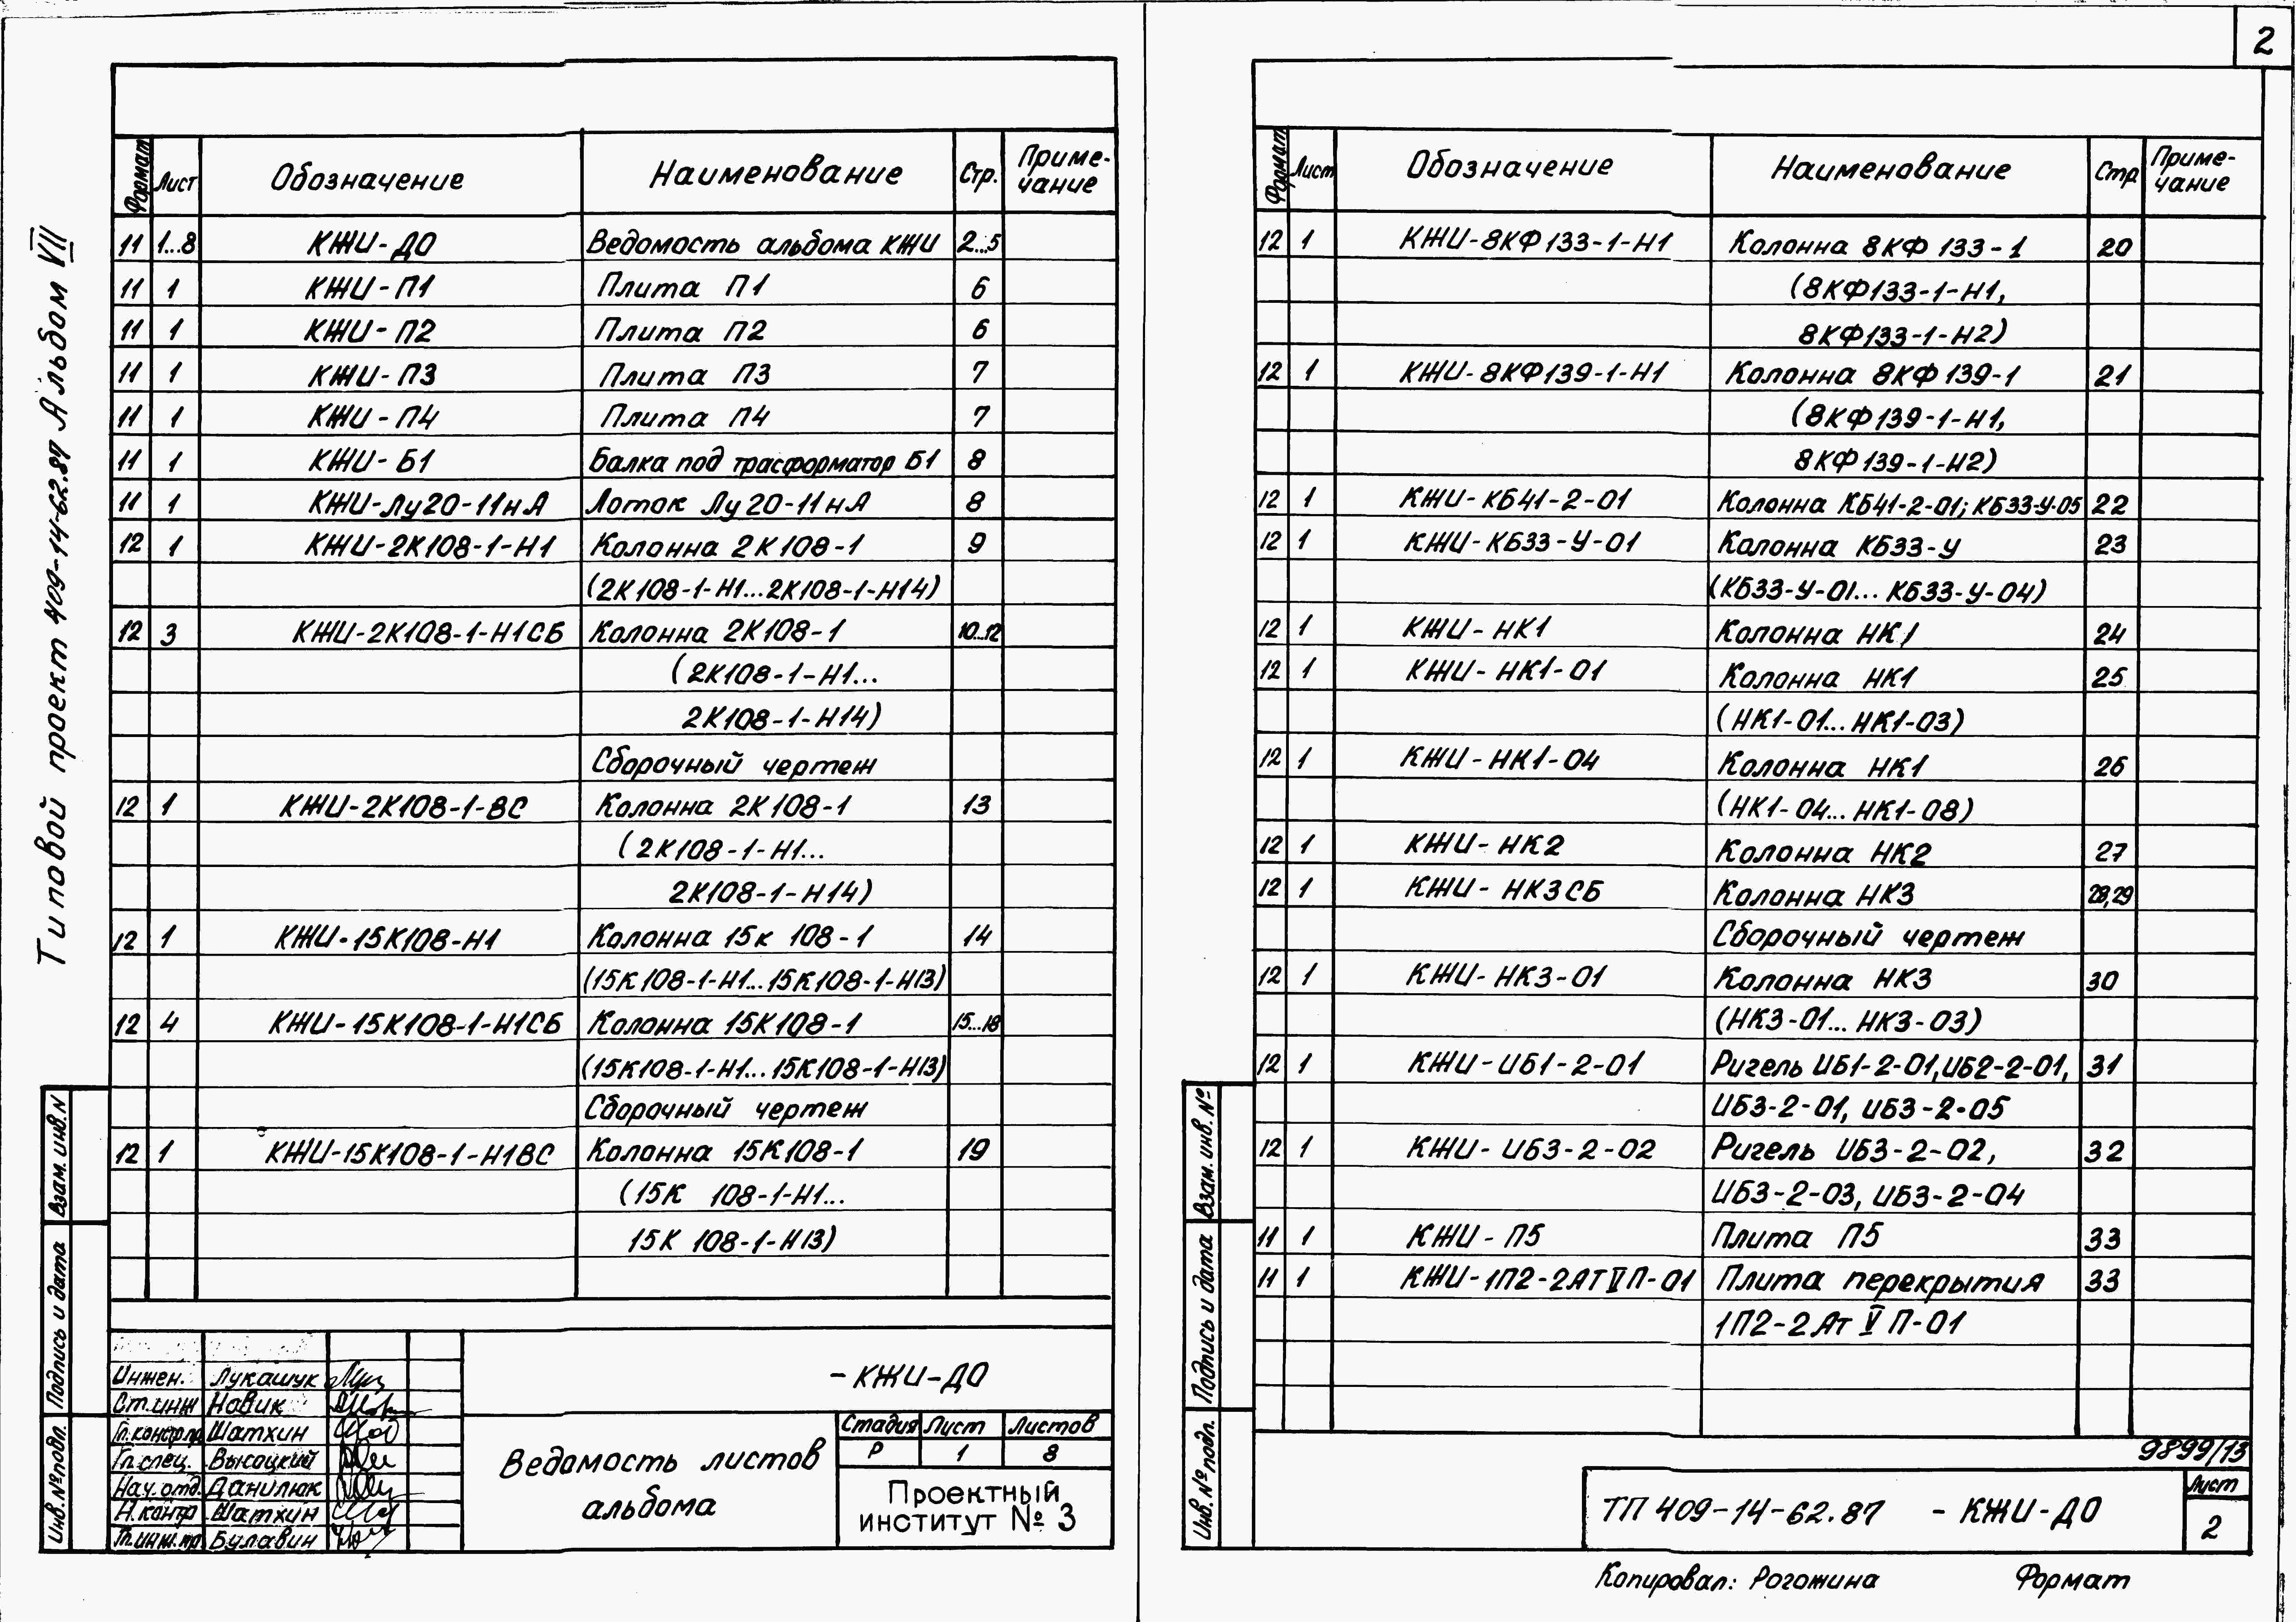 2
Типовой проект 409-14-62.87 Альбом VII
Формат Лист Обозначение Наименование Стр. Приме-
чание
11 1...8 КЖИ-ДО Ведомость альбома КЖИ 2...5
11 1 КЖИ-П1 Плита П1 6
11 1 КЖИ-П2 Плита П2 6
11 1 КЖИ-П3 Плита П3 7
11 1 КЖИ-П4 Плита П4 7
11 1 КЖИ-Б1 Балка под трасформатор Б1 8
11 1 КЖИ-Лу20-11нА Лоток Лу20-11нА 8
12 1 КЖИ-2К108-1-Н1 Колонна 2К108-1 9
(2К108-1-Н1...2К108-1-Н14)
12 3 КЖИ-2К108-1-Н1СБ Колонна 2К108-1 10...12
(2К108-1-Н1...
2К108-1-Н14)
Сборочный чертеж
12 1 КЖИ-2К108-1-ВС Колонна 2К108-1 13
(2К108-1-Н1...
2К108-1-Н14)
12 1 КЖИ-15К108-Н1 Колонна 15к 108-1 14
(15К108-1-Н1...15К108-1-Н13)
12 4 КЖИ-15К108-1-Н1СБ Колонна 15К108-1 15...18
(15К108-1-Н1...15К108-1-Н13)
Сборочный чертеж
12 1 КЖИ-15К108-1-Н1ВС Колонна 15К108-1 19
(15К 108-1-Н1...
15К 108-1-Н13)
Взам. инв. N
Подпись и дата
Инв. № подл.
Инжен. Лукашук
Ст.инж Новик
Гл.констр.пр Шаткин
Гл.спец. Высоцкий
Нач.отд. Данилюк
Н.контр Шаткин
Гл.инж.пр Булавин
-КЖИ-ДО
Ведомость листов
альбома
Стадия Лист Листов
Р 1 8
Проектный
институт № 3
Формат Лист Обозначение Наименование Стр Приме-
чание
12 1 КЖИ-8КФ133-1-Н1 Колонна 8КФ 133-1 20
(8КФ133-1-Н1,
8КФ133-1-Н2)
12 1 КЖИ-8КФ139-1-Н1 Колонна 8КФ139-1 21
(8КФ139-1-Н1,
8КФ139-1-Н2)
12 1 КЖИ-КБ41-2-01 Колонна КБ41-2-01; КБ33-У-05 22
12 1 КЖИ-КБ33-У-01 Колонна КБ33-У 23
(КБ33-У-01...КБ33-У-04)
12 1 КЖИ-НК1 Колонна НК1 24
12 1 КЖИ-НК1-01 Колонна НК1 25
(НК1-01...НК1-03)
12 1 КЖИ-НК1-04 Колонна НК1 26
(НК1-04...НК1-08)
12 1 КЖИ-НК2 Колонна НК2 27
12 1 КЖИ-НК3СБ Колонна НК3 28,29
Сборочный чертеж
12 1 КЖИ-НК3-01 Колонна НК3 30
(НК3-01...НК3-03)
12 1 КЖИ-ИБ1-2-01 Ригель ИБ1-2-01,ИБ2-2-01, 31
ИБ3-2-01, ИБ3-2-05
12 1 КЖИ-ИБ3-2-02 Ригель ИБ3-2-02, 32
ИБ3-2-03, ИБ3-2-04
11 1 КЖИ-П5 Плита П5 33
11 1 КЖИ-1П2-2АТVП-01 Плита перекрытия 33
1П2-2АтVП-01
Взам. инв. №
Подпись и дата
Инв. № подл.
9899/13
ТП 409-14-62.87 -КЖИ-ДО
Лист
2
Копировал: Рогожина Формат